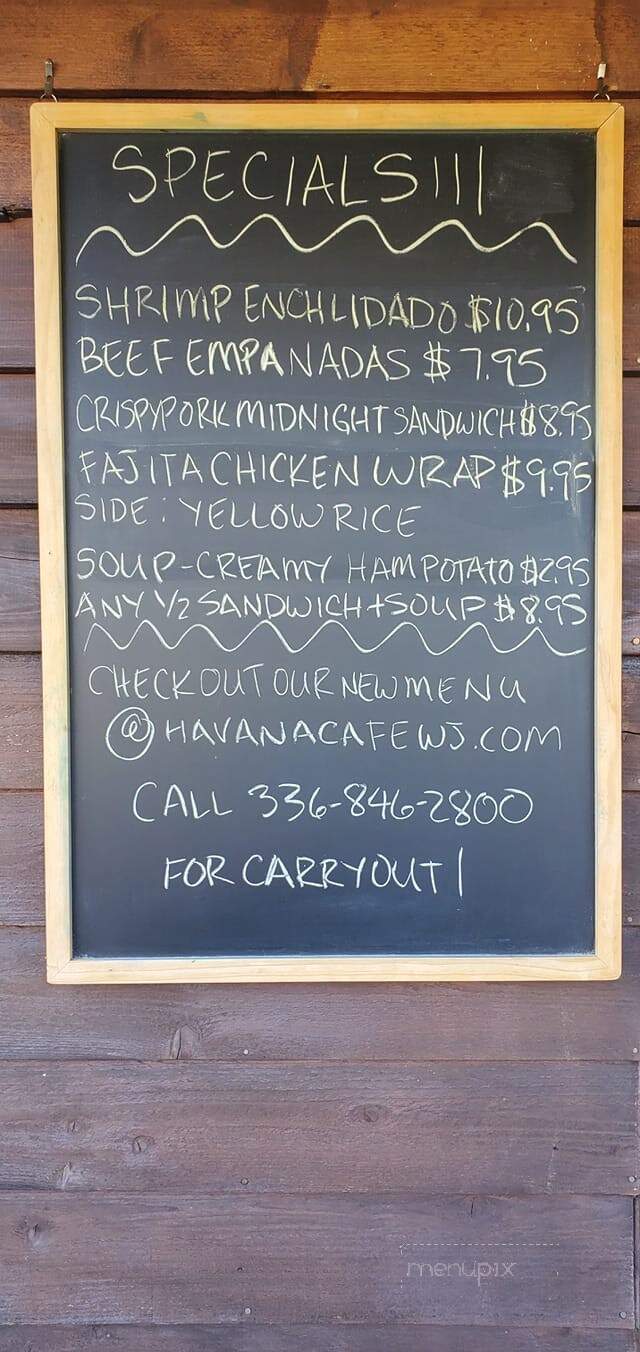 SPECIALS!!!
SHRIMP ENCHLIDADO $10.95
BEEF EMPANADAS $7.95
CRISPY PORK MIDNIGHT SANDWICH $8.95
FAJITA CHICKEN WRAP $9.95
SIDE: YELLOW RICE
SOUP-CREAMY HAM POTATO $2.95
ANY 1/2 SANDWICH + SOUP $8.95
CHECK OUT OUR NEW MENU
@ HAVANACAFEWJ.COM
CALL 336-846-2800
FOR CARRYOUT!
menupix